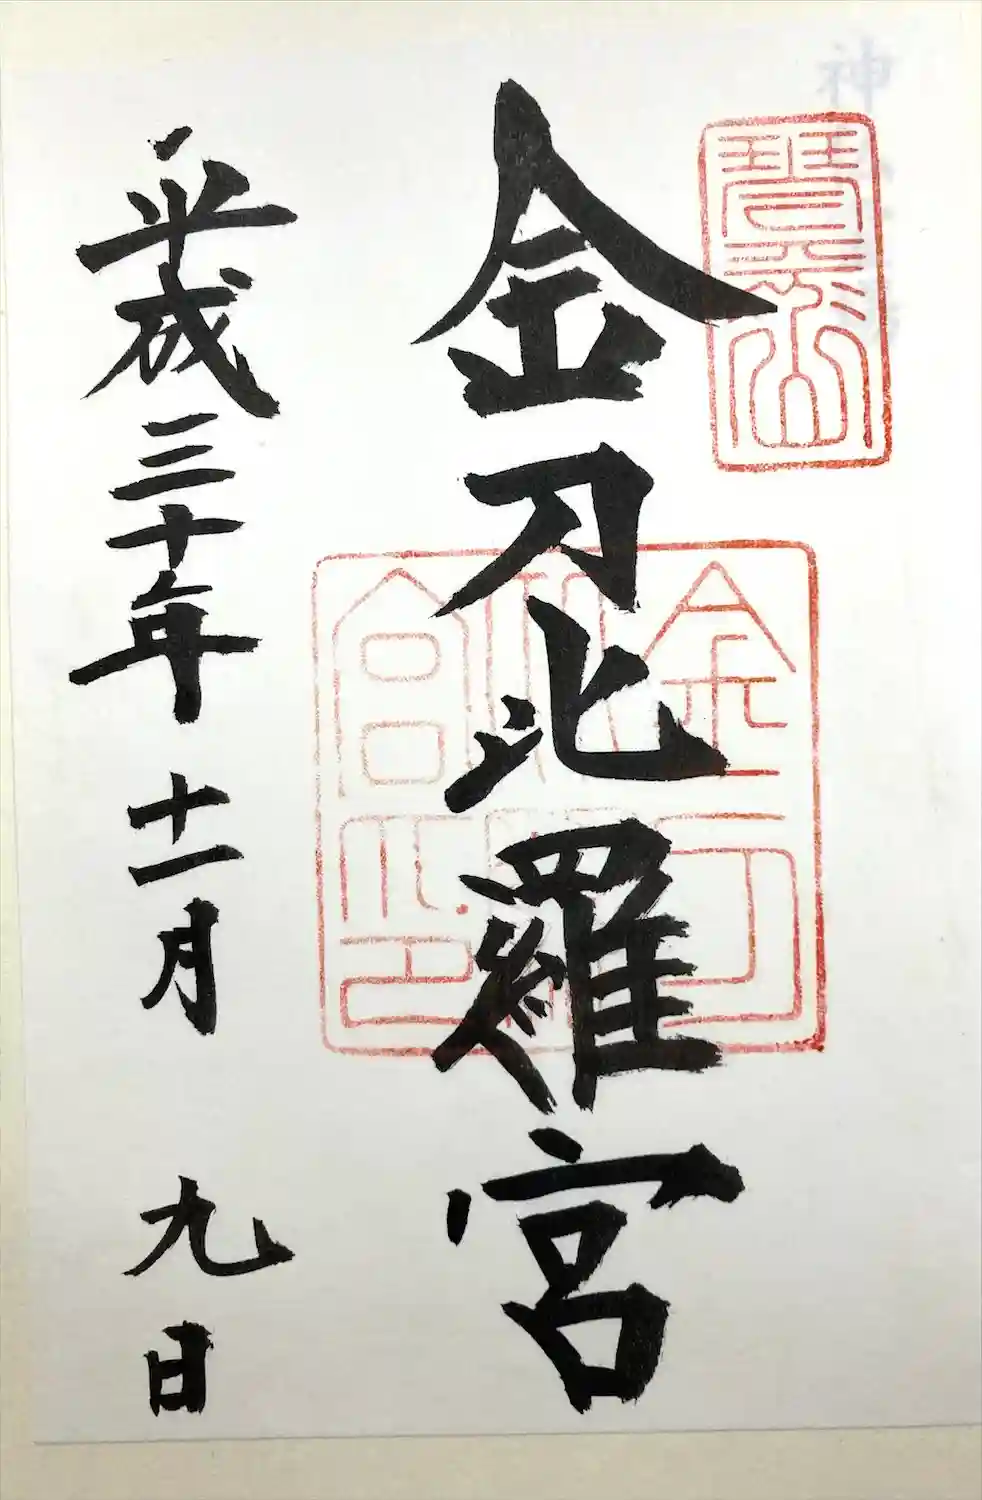 琴平山
金刀比羅宮
金刀比羅宮之印
平成三十年十一月九日